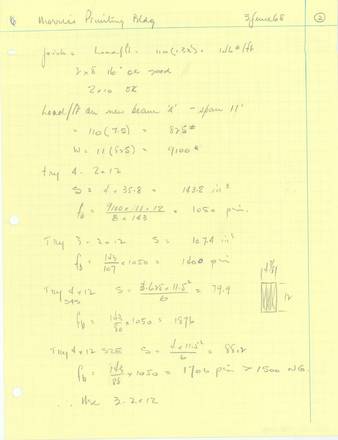 Morris Printing Bldg 3 June 68 2
Joists = Load/ft = 110(1.33) = 146#/ft
2x8 16" ok
2x10 OK
Load/ft on new beam 'A' - span 11'
= 110(7.5) = 825#
W = 11(825) = 9100#
Try 4-2x12
S = 4 x 35.8 = 143.2 in³
fb = 9100 x 11 x 12 / 8 x 143 = 1050 psi.
Try 3-2x12 S = 107.4 in³
fb = 143/107 x 1050 = 1400 psi
Try 4x12 S4S S = 3.625 x 11.5² / 6 = 79.9
12
fb = 143/80 x 1050 = 1876
Try 4x12 S2E S = 4 x 11.5² / 6 = 88.2
fb = 143/88 x 1050 = 1706 psi > 1500 NG.
∴ Use 3-2x12